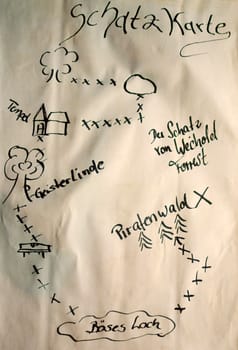 Schatzkarte
Tempel
Der Schatz
von Wechold
Forrest
Geisterlinde
Piratenwald X
Böses Loch